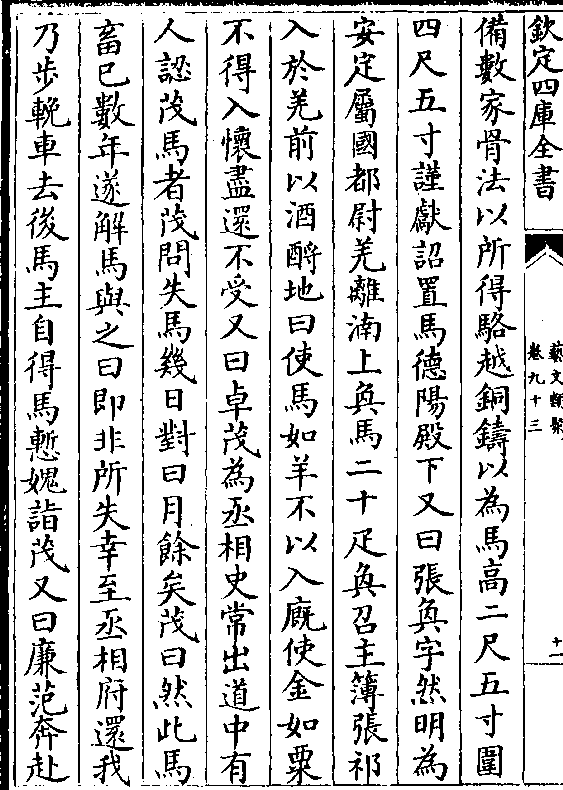 欽定四庫全書
藝文類聚
卷九十三
十一
備數家骨法以所得駱越銅鑄以為馬高二尺五寸圍
四尺五寸謹獻詔置馬德陽殿下又曰張奐字然明為
安定屬國都尉羌離湳上奐馬二十疋奐召主簿張祁
入於羌前以酒酹地曰使馬如羊不以入廐使金如粟
不得入懷盡還不受又曰卓茂為丞相史常出道中有
人認茂馬者茂問失馬幾日對曰月餘矣茂曰然此馬
畜已數年遂解馬與之曰即非所失幸至丞相府還我
乃步輓車去後馬主自得馬慙媿詣茂又曰廉范奔赴